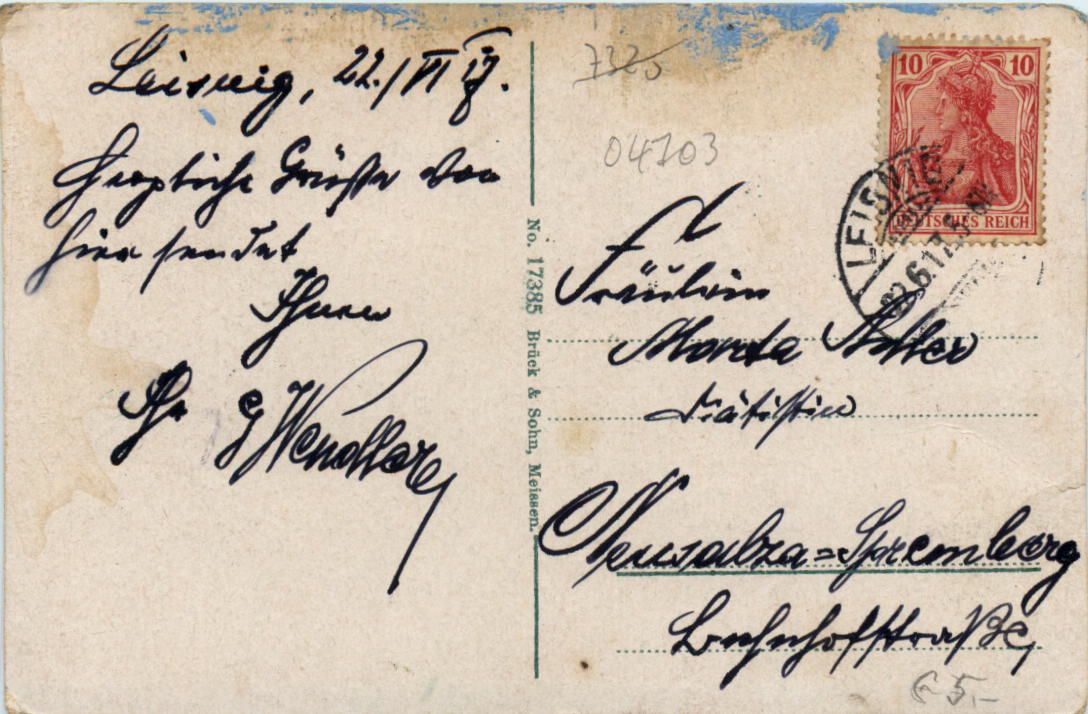 Leisnig, 22./VI 17.
Herzliche Grüße von
hier sendet
Ihnen
Ihr G Wendler
No. 17385 Brück & Sohn, Meissen.
7325
04703
10 10
DEUTSCHES REICH
LEISNIG
22.6.17.
Fräulein
Adler
Diätistin
Neusalza=Spremberg
Bahnhofstraße,
€ 5,-